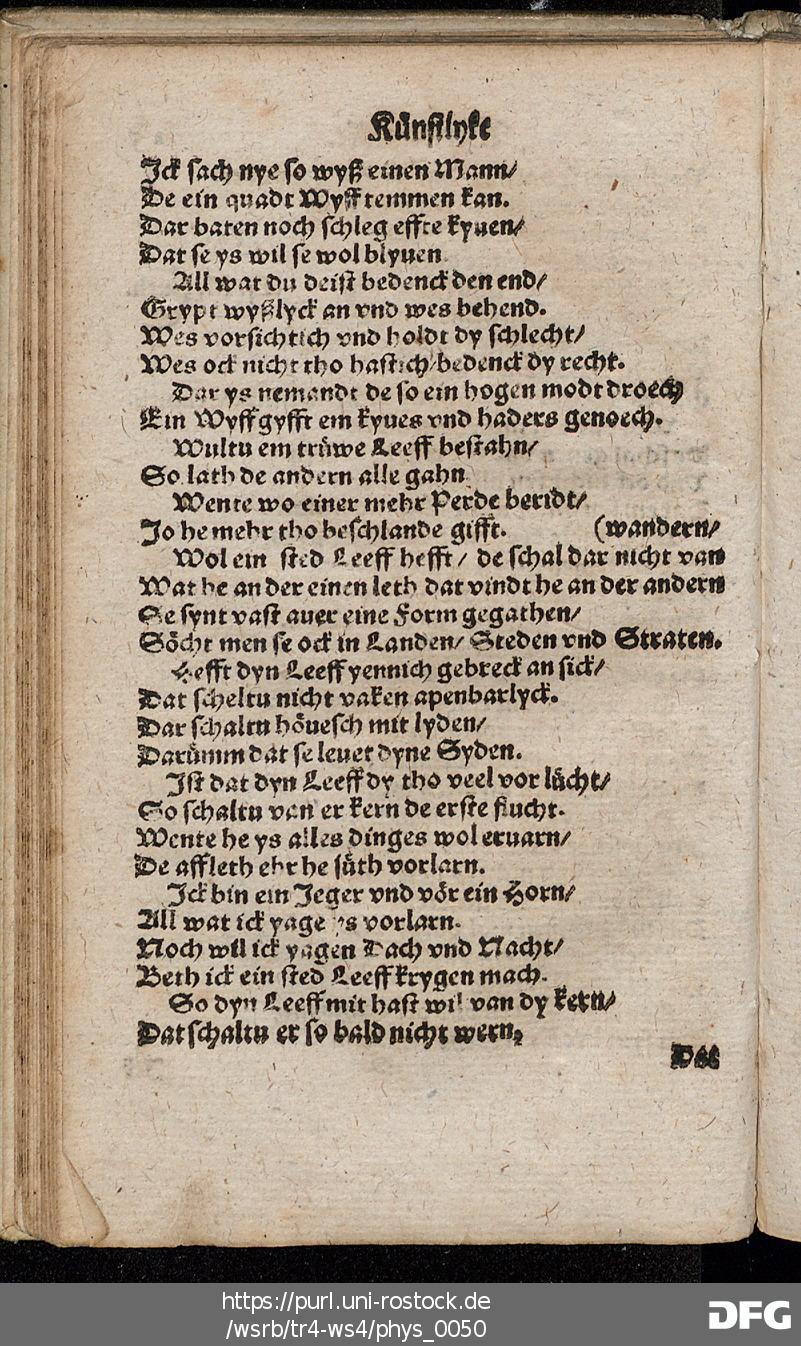 Künstlyke
Ick sach nye so wyß einen Mann/
De ein quadt Wyff temmen kan.
Dar baten noch schleg effte kyuen/
Dat se ys wil se wol blyuen
All wat du deist bedenck den end/
Grypt wyßlyck an vnd wes behend.
Wes vorsichtich vnd holdt dy schlecht/
Wes ock nicht tho hastich/bedenck dy recht.
Dar ys nemandt de so ein hogen modt droech
Ein Wyff gyfft em kyues vnd haders genoech.
Wultu em trüwe Leeff bestahn/
So lath de andern alle gahn
Wente wo einer mehr Perde beridt/
Jo he mehr tho beschlande gifft. (wandern/
Wol ein sted Leeff hefft/ de schal dar nicht van
Wat he an der einen leth dat vindt he an der andern
Se synt vast auer eine Form gegathen/
Söcht men se ock in Landen/ Steden vnd Straten.
Hefft dyn Leeff yennich gebreck an sick/
Dat scheltu nicht vaken apenbarlyck.
Dar schaltu höuesch mit lyden/
Darümm dat se leuet dyne Syden.
Ist dat dyn Leeff dy tho veel vor lücht/
So schaltu van er kern de erste flucht.
Wente he ys alles dinges wol eruarn/
De affleth ehr he süth vorlarn.
Ick bin ein Jeger vnd vör ein Horn/
All wat ick yage ys vorlarn.
Noch wil ick yagen Dach vnd Nacht/
Beth ick ein sted Leeff krygen mach.
So dyn Leeff mit hast wil van dy kern/
Dat schaltu er so bald nicht wern,
https://purl.uni-rostock.de
/wsrb/tr4-ws4/phys_0050
DFG